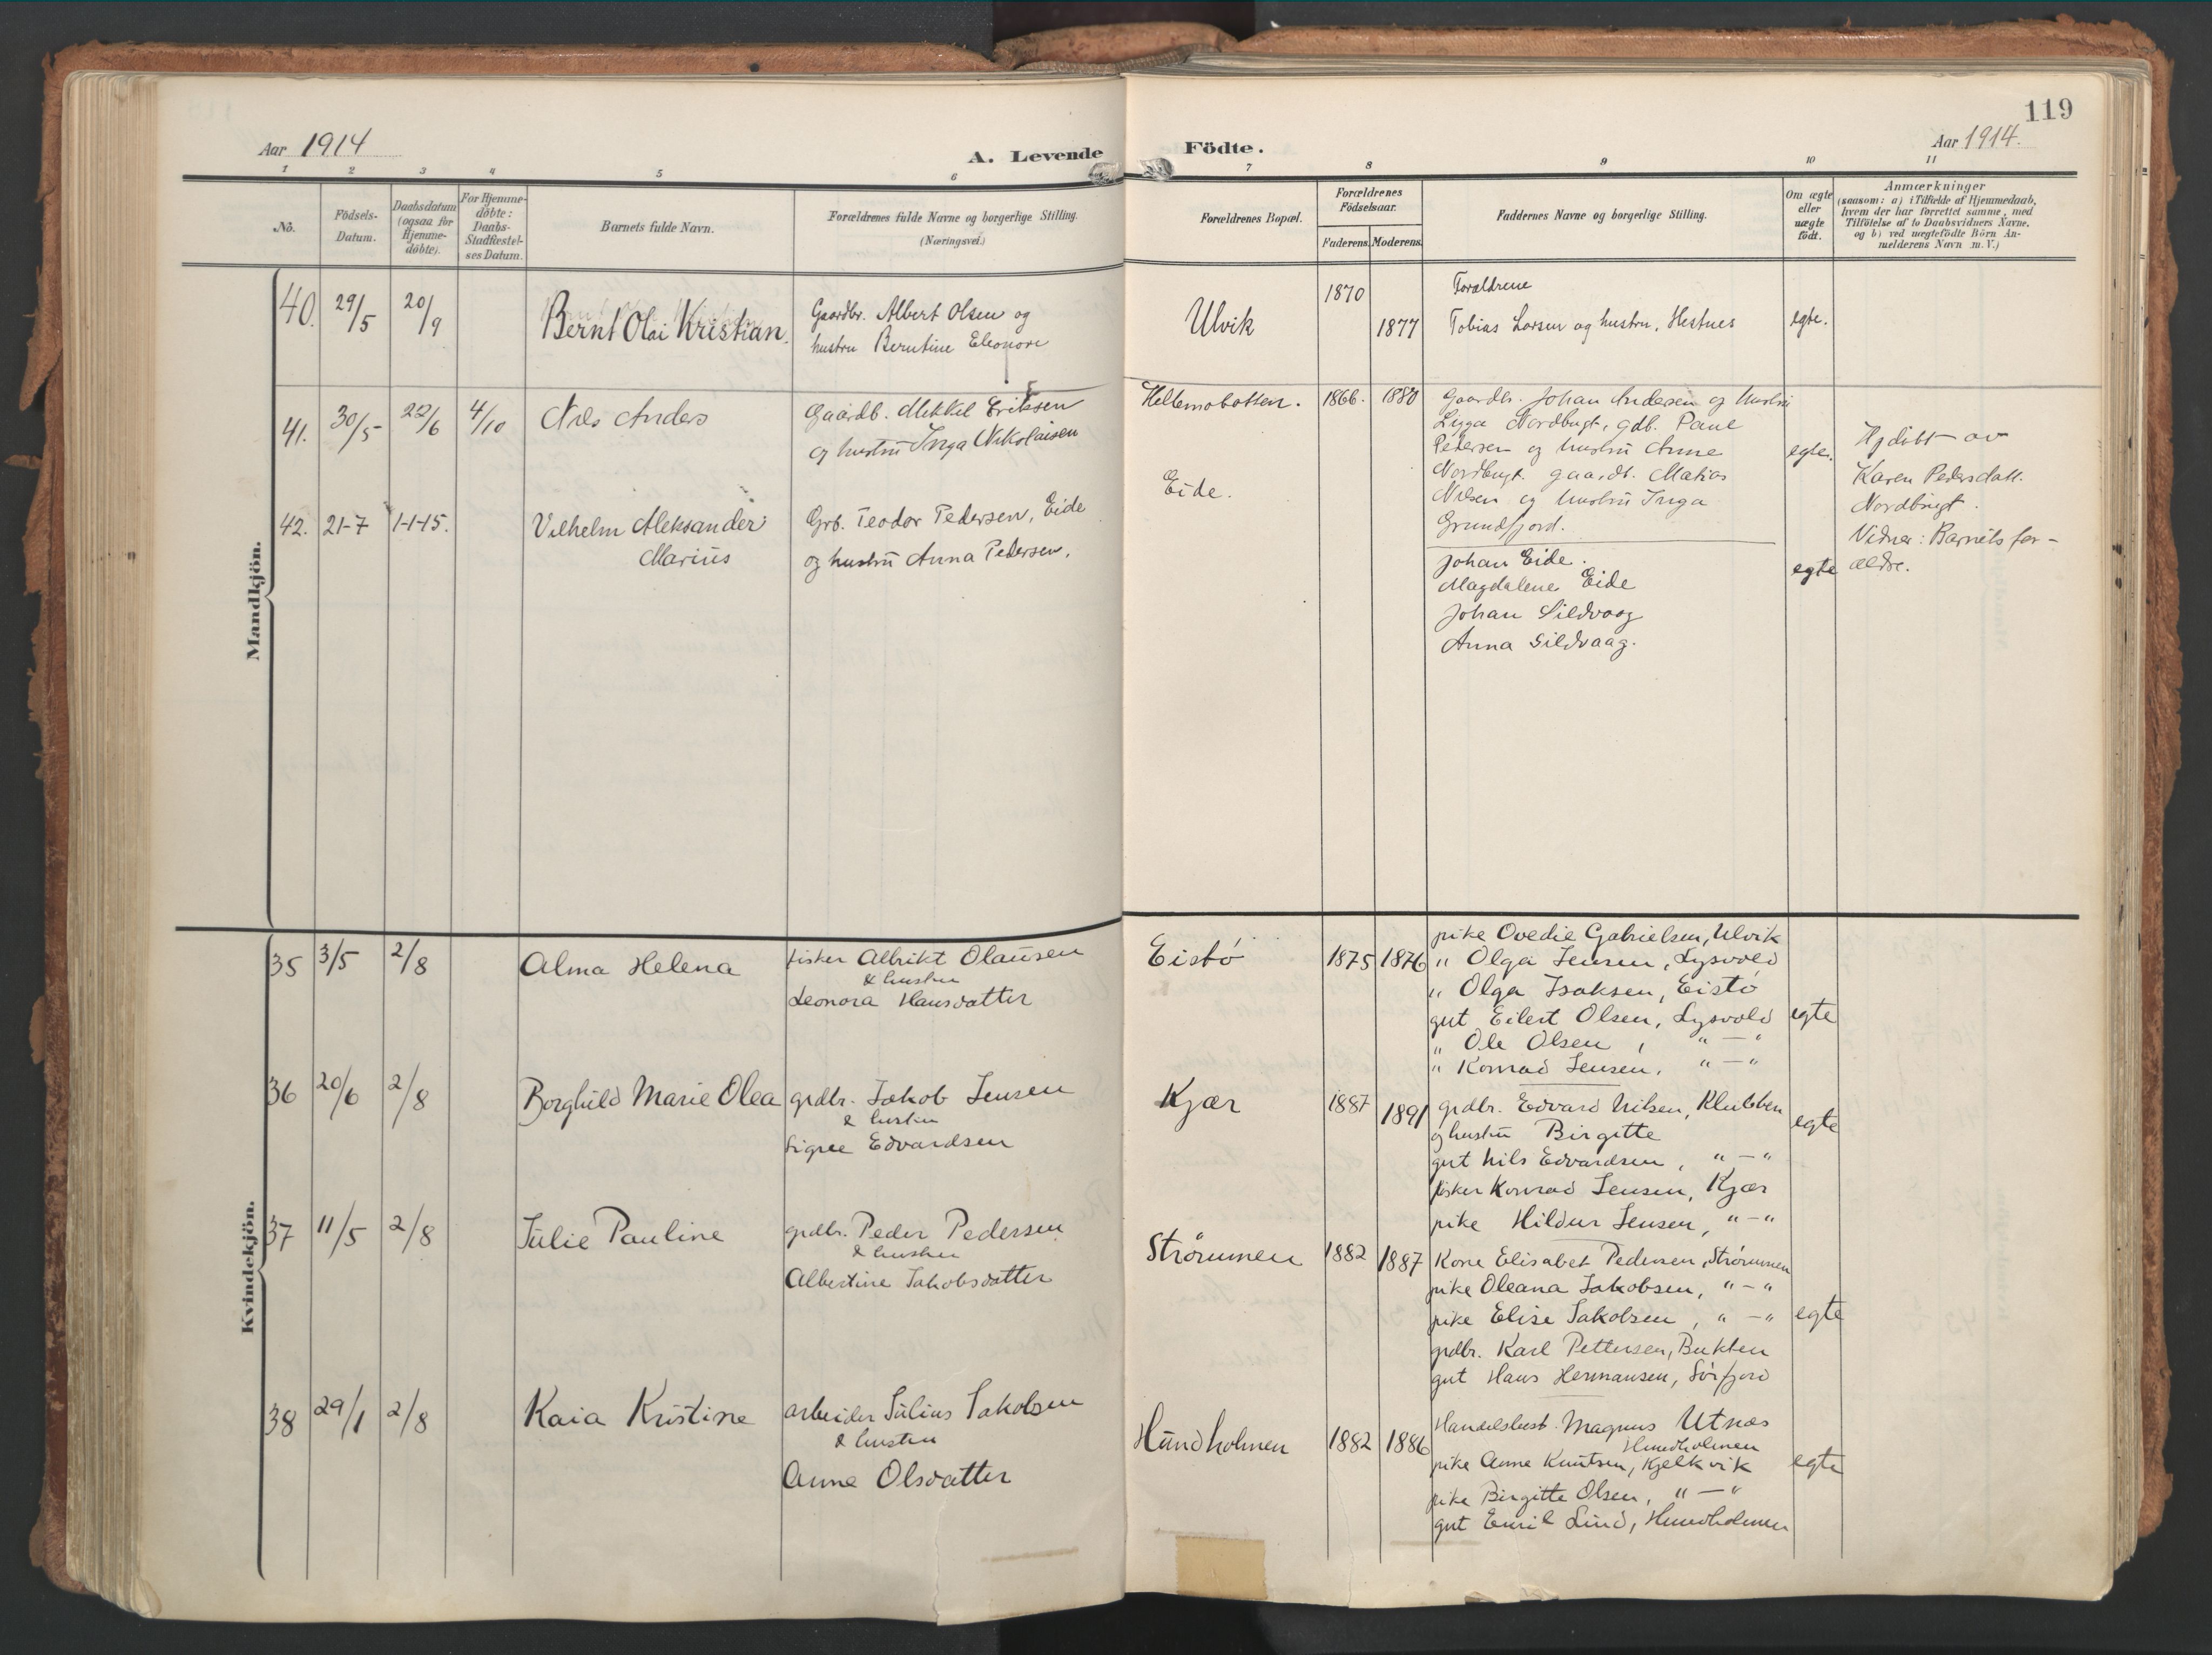 119
Aar 1914
A. Levende Födte.
Aar 1914.
1 2 3 4 5 6 7 8 9 10 11
No.
Födsels-
Datum.
Daabsdatum
(ogsaa for
Hjemme-
döbte).
For Hjemme-
döbte:
Daabs-
Stadfæstel-
ses Datum.
Barnets fulde Navn.
Forældrenes fulde Navne og borgerlige Stilling.
(Næringsvei.)
Forældrenes Bopæl.
Forældrenes
Födselsaar.
Faderens. Moderens.
Faddernes Navne og borgerlige Stilling.
Om ægte
eller
uægte
födt.
Anmærkninger
(saasom: a) i Tilfælde af Hjemmedaab,
hvem der har forrettet samme, med
Tilföielse af to Daabsvidners Navne,
og b) ved uægtefödte Börn An-
melderens Navn m. V.)
Mandkjön.
40. 29/5 20/9
Bernt Olai Kristian.
Gaardbr. Albert Olsen og
hustru Berntine Eleonore
Ulvik
1870 1877
Forældrene
Tobias Larsen og hustru, Hestnes
egte.
41. 30/5 22/6 4/10
Nils Anders
Gaardb. Mikkel Eriksen
og hustru Inga Nikolaisen
Hellemobotten.
1866. 1880
Gaardbr. Johan Andersen og hustru
Nordbugt, gdb. Paul
Pedersen og hustru Anne
Nordbugt. gaardb. Matias
Nilsen og hustru Inga
Grundfjord.
egte.
Hjdøbt av
Karen Pedersdatt.
Nordbugt.
Vidner: Barnets for-
ældre.
42. 21-7 1-1-15.
Vilhelm Aleksander
Marius
Grb. Teodor Pedersen, Eide
og hustru Anna Pedersen.
Eide.
Johan Eide.
Magdalene Eide
Johan Sildvaag
Anna Sildvaag.
egte
Kvindekjön.
35 3/5 2/8
Alma Helena
fisker Albrikt Olausen
& hustru
Leonora Hansdatter
Eistø
1875 1876
pike Ovedie Gabrielsen, Ulvik
" Olga Jensen, Lysvold
" Olga Isaksen, Eistø
gut Eilert Olsen, Lysvold
" Ole Olsen, " — "
" Konrad Jensen, " — "
egte
36 20/6 2/8
Borghild Marie Olea
grdbr. Jakob Jensen
& hustru
Signe Edvardsen
Kjær
1887 1891
grdbr. Edvard Nilsen, Klubben
og hustru Birgitte
gut Nils Edvardsen, " — "
fisker Konrad Jensen, Kjær
pike Hildur Jensen, " — "
egte
37 11/5 2/8
Julie Pauline
grdbr. Peder Pedersen
& hustru
Albertine Jakobsdatter
Strømmen
1882 1887
Kone Elisabet Pedersen, Strømmen
pike Oleana Jakobsen, " — "
pike Elise Jakobsen, " — "
grdbr. Karl Pettersen, Bukten
gut Hans Hermansen, Sørfjord
egte
38 29/1 2/8
Kaia Kristine
arbeider Julius Jakobsen
& hustru
Anne Olsdatter
Hundholmen
1882 1886
Handelsbest. Magnus Utnæs
Hundholmen
pike Anne Knutsen, Kjelkvik
pike Birgitte Olsen, " — "
gut Emil Lind, Hundholmen
egte